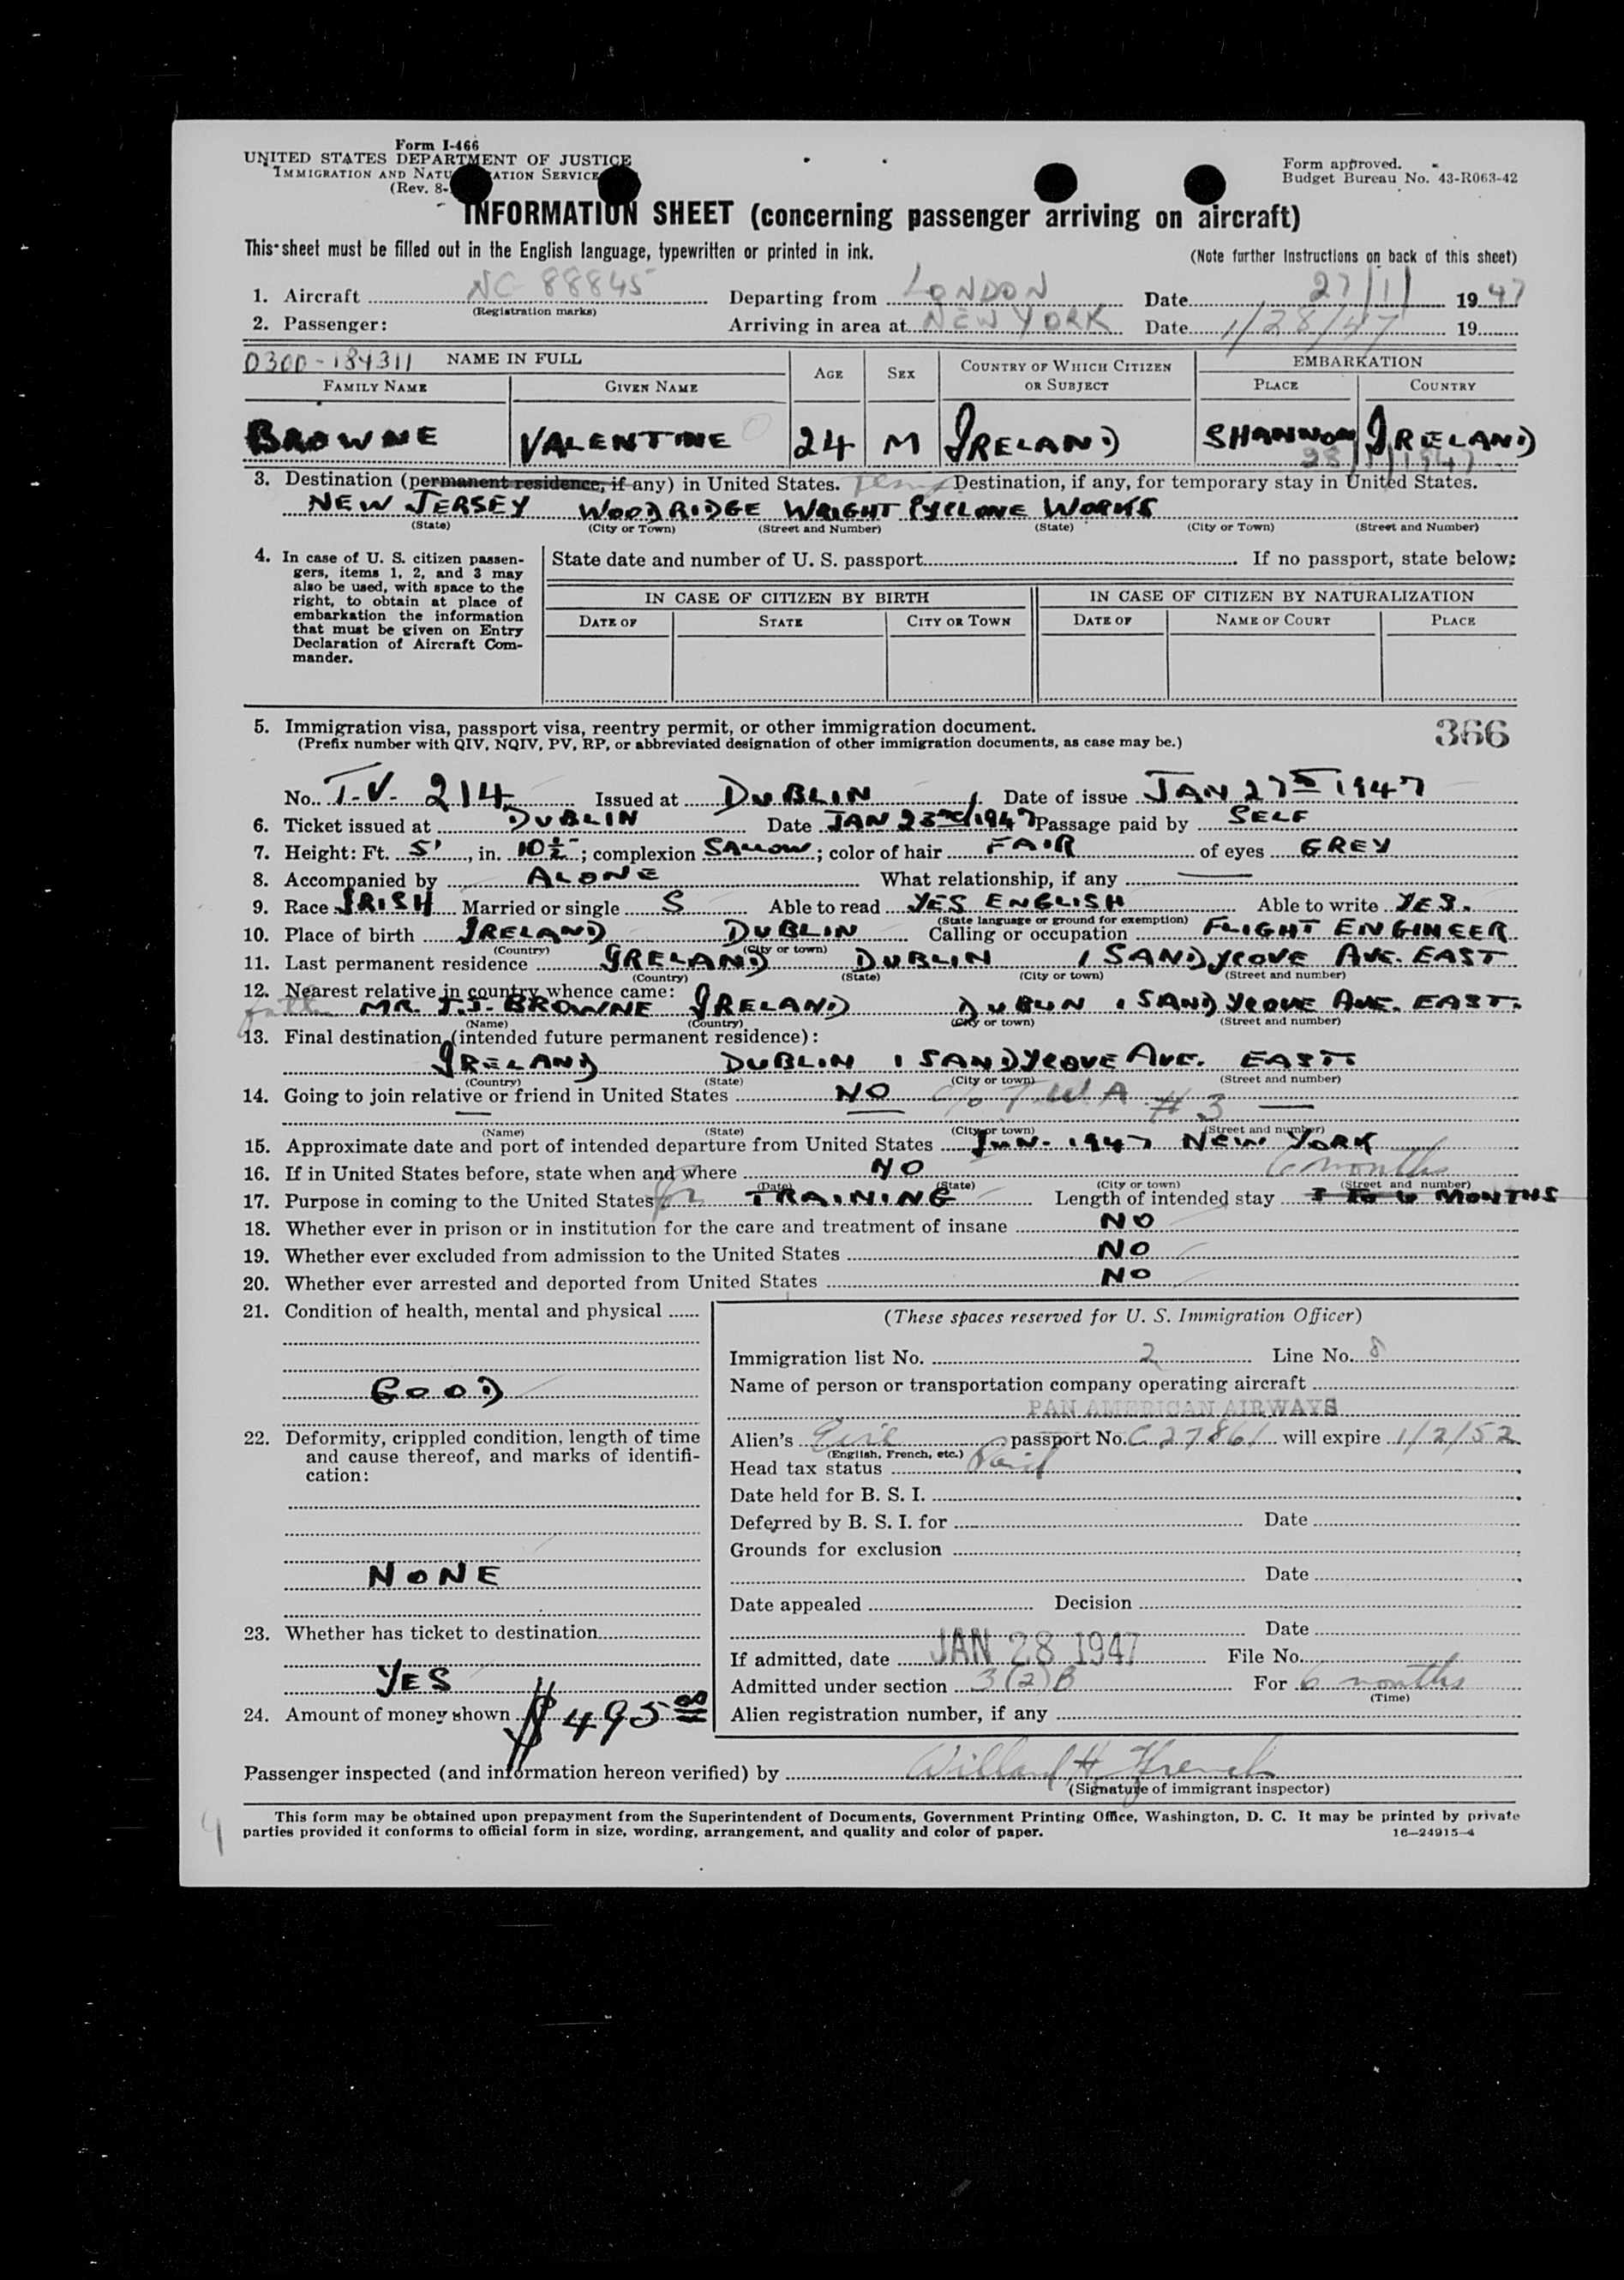 Form I-466
UNITED STATES DEPARTMENT OF JUSTICE
IMMIGRATION AND NATU ATION SERVICE
(Rev. 8-
Form approved.
Budget Bureau No. 43-R063-42
INFORMATION SHEET (concerning passenger arriving on aircraft)
This sheet must be filled out in the English language, typewritten or printed in ink. (Note further instructions on back of this sheet)
1. Aircraft NC 88845 Departing from LONDON Date 27/1/ 1947
(Registration marks)
2. Passenger: Arriving in area at NEW YORK Date 1/28/47 19
0300-184311 NAME IN FULL AGE SEX COUNTRY OF WHICH CITIZEN OR SUBJECT EMBARKATION
FAMILY NAME GIVEN NAME PLACE COUNTRY
BROWNE VALENTINE O 24 M IRELAND SHANNON IRELAND
28/1/1947
3. Destination (permanent residence, if any) in United States. Destination, if any, for temporary stay in United States.
NEW JERSEY WOODRIDGE WRIGHT CYCLONE WORKS
(State) (City or Town) (Street and Number) (State) (City or Town) (Street and Number)
4. In case of U. S. citizen passen-
gers, items 1, 2, and 3 may
also be used, with space to the
right, to obtain at place of
embarkation the information
that must be given on Entry
Declaration of Aircraft Com-
mander.
State date and number of U. S. passport If no passport, state below:
IN CASE OF CITIZEN BY BIRTH IN CASE OF CITIZEN BY NATURALIZATION
DATE OF STATE CITY OR TOWN DATE OF NAME OF COURT PLACE
5. Immigration visa, passport visa, reentry permit, or other immigration document. 366
(Prefix number with QIV, NQIV, PV, RP, or abbreviated designation of other immigration documents, as case may be.)
No. T.V. 214 Issued at DUBLIN Date of issue JAN 27TH 1947
6. Ticket issued at DUBLIN Date JAN 23rd/1947 Passage paid by SELF
7. Height: Ft. 5', in. 10½"; complexion SALLOW; color of hair FAIR of eyes GREY
8. Accompanied by ALONE What relationship, if any —
9. Race IRISH Married or single S Able to read YES ENGLISH Able to write YES.
(State language or ground for exemption)
10. Place of birth IRELAND DUBLIN Calling or occupation FLIGHT ENGINEER
(Country) (City or town)
11. Last permanent residence IRELAND DUBLIN 1 SANDYCOVE AVE. EAST
(Country) (State) (City or town) (Street and number)
12. Nearest relative in country whence came:
father MR. J.J. BROWNE IRELAND DUBLIN 1 SANDYCOVE AVE. EAST.
(Name) (Country) (City or town) (Street and number)
13. Final destination (intended future permanent residence):
IRELAND DUBLIN 1 SANDYCOVE AVE. EAST.
(Country) (State) (City or town) (Street and number)
14. Going to join relative or friend in United States NO c/o T.W.A #3
— —
(Name) (State) (City or town) (Street and number)
15. Approximate date and port of intended departure from United States JUN. 1947 NEW YORK
16. If in United States before, state when and where NO 6 months
(Date) (State) (City or town) (Street and number)
17. Purpose in coming to the United States for TRAINING Length of intended stay TO 6 MONTHS
18. Whether ever in prison or in institution for the care and treatment of insane NO
19. Whether ever excluded from admission to the United States NO
20. Whether ever arrested and deported from United States NO
21. Condition of health, mental and physical
GOOD
22. Deformity, crippled condition, length of time
and cause thereof, and marks of identifi-
cation:
NONE
23. Whether has ticket to destination
YES
24. Amount of money shown $495.00
(These spaces reserved for U. S. Immigration Officer)
Immigration list No. 2 Line No. 8
Name of person or transportation company operating aircraft
PAN AMERICAN AIRWAYS
Alien's Eire passport No. C 27861 will expire 1/2/52
(English, French, etc.)
Head tax status Paid
Date held for B. S. I.
Deferred by B. S. I. for Date
Grounds for exclusion
Date
Date appealed Decision
Date
If admitted, date JAN 28 1947 File No.
Admitted under section 3(2)B For 6 months
(Time)
Alien registration number, if any
Passenger inspected (and information hereon verified) by Willard H. French
(Signature of immigrant inspector)
This form may be obtained upon prepayment from the Superintendent of Documents, Government Printing Office, Washington, D. C. It may be printed by private
parties provided it conforms to official form in size, wording, arrangement, and quality and color of paper. 16—24915-4